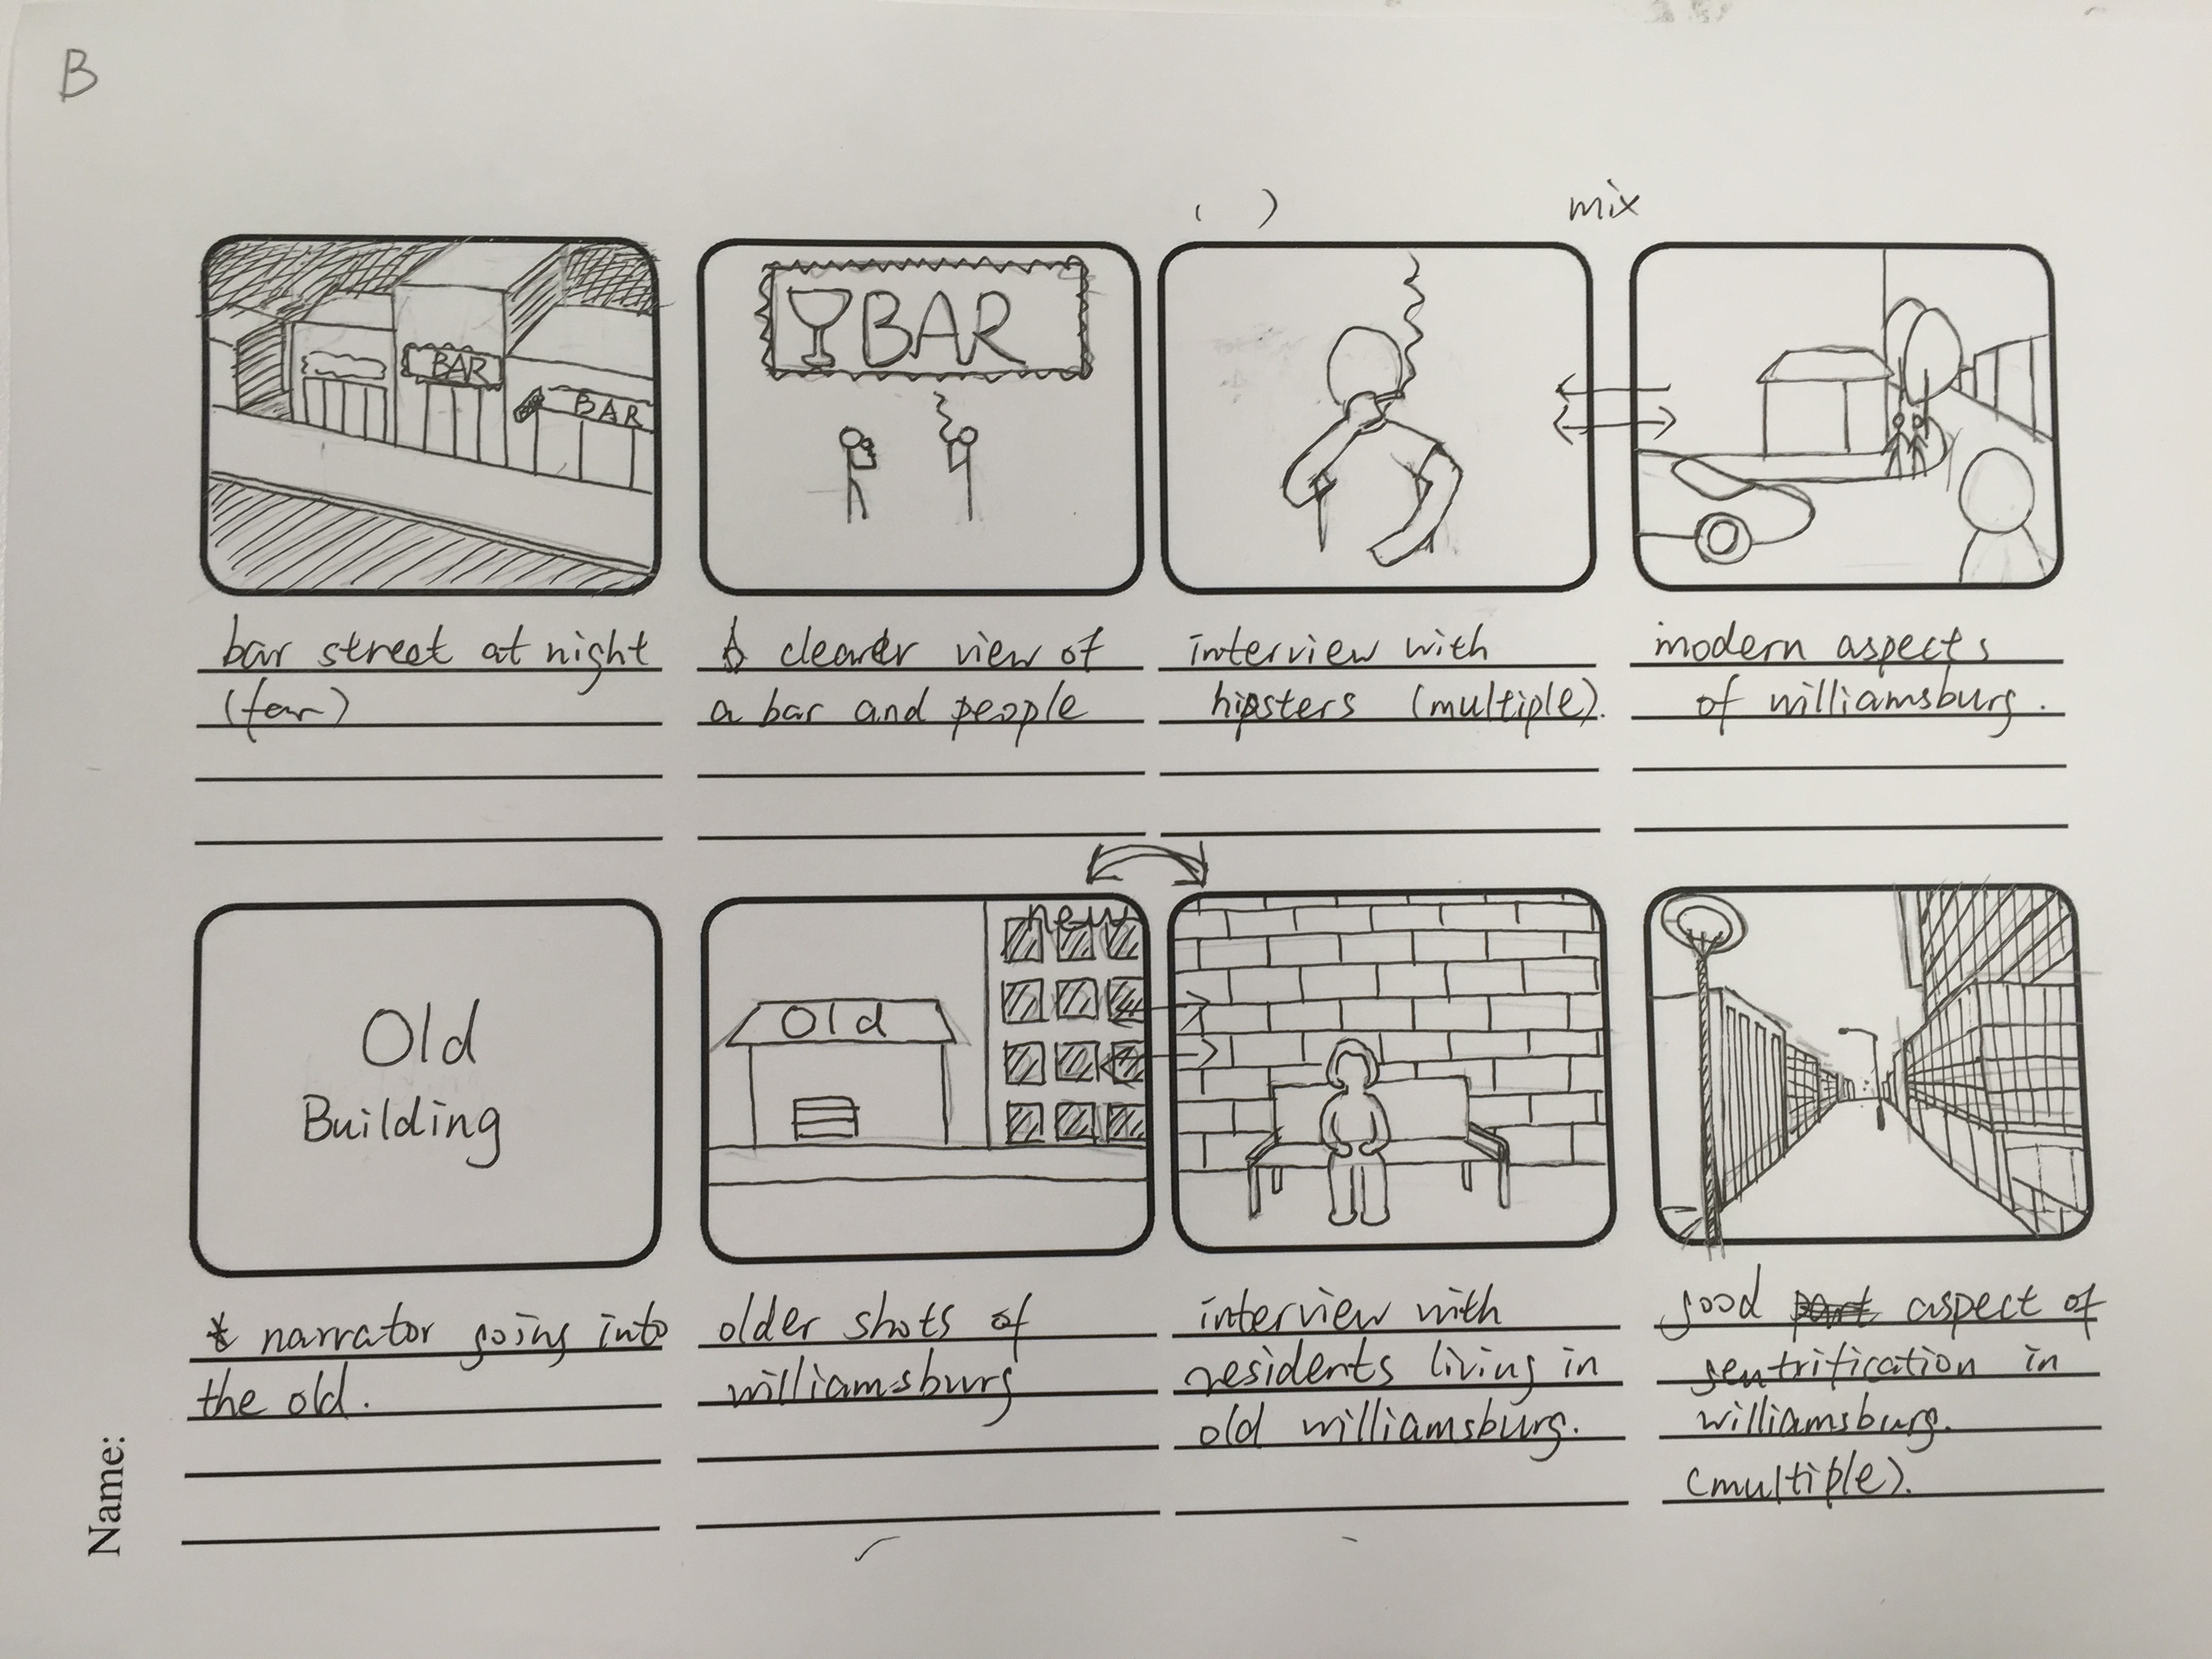 B
( ) mix
BAR
BAR
BAR
bar street at night
(far)
A clearer view of
a bar and people
interview with
hipsters (multiple).
modern aspects
of williamsburg.
Old
Building
Old
new
* narrator going into
the old.
older shots of
williamsburg
interview with
residents living in
old williamsburg.
good aspect of
gentrification in
williamsburg.
(multiple).
Name: